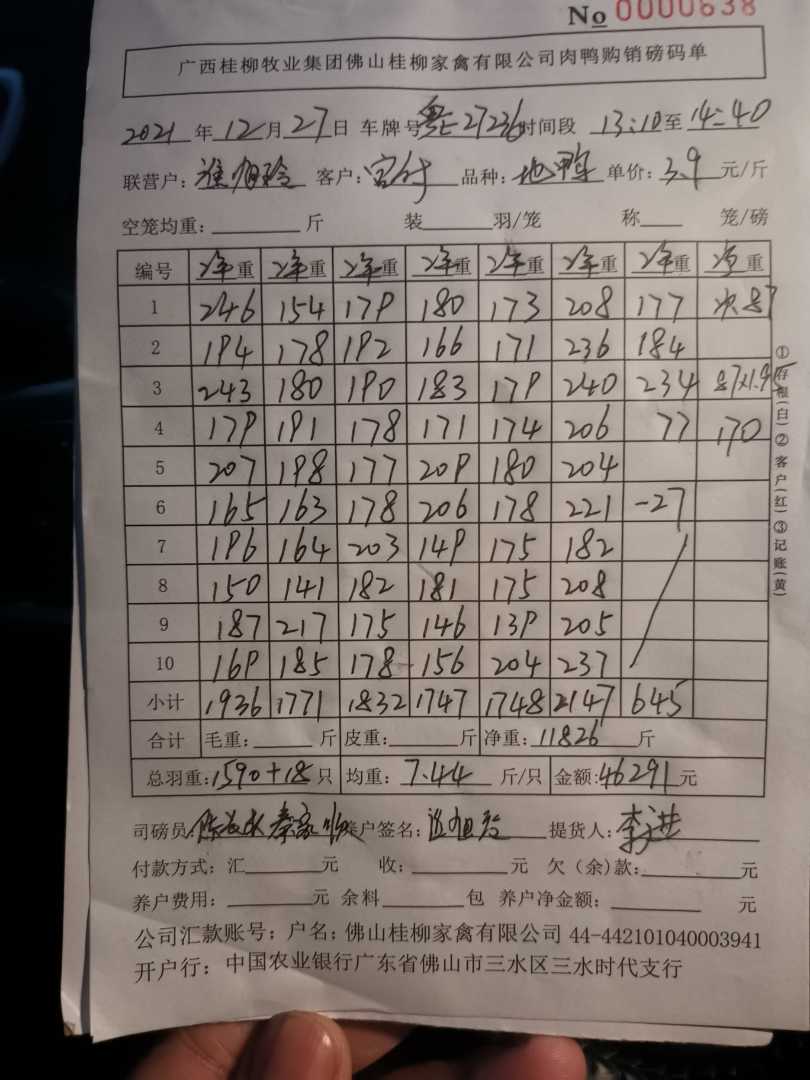 No 0000638
广西桂柳牧业集团佛山桂柳家禽有限公司肉鸭购销磅码单
2021 年 12 月 27 日 车牌号 粤E27236 时间段 13:10 至 14:40
联营户: 客户: 品种: 单价: 3.9 元/斤
空笼均重: 斤 装 羽/笼 称 笼/磅
编号 重 重 重 重 重 重 重 重
1 246 154 179 180 173 208 177 次87
2 194 178 192 166 171 236 184
3 243 180 190 183 179 240 234 87×1.95
4 179 191 178 171 174 206 77 170
5 207 198 177 209 180 204
6 165 163 178 206 178 221 -27
7 196 164 203 149 175 182
8 150 141 182 181 175 208
9 187 217 175 146 139 205
10 169 185 178 156 204 237
小计 1936 1771 1832 1747 1748 2147 645
合计 毛重: 斤 皮重: 斤 净重: 11826 斤
总羽重: 1590+18 只 均重: 7.44 斤/只 金额: 46291 元
①存根(白)②客户(红)③记账(黄)
司磅员: 养户签名: 提货人:
付款方式: 汇 元 收: 元 欠(余)款: 元
养户费用: 元 余料 包 养户净金额: 元
公司汇款账号; 户名; 佛山桂柳家禽有限公司 44-442101040003941
开户行: 中国农业银行广东省佛山市三水区三水时代支行